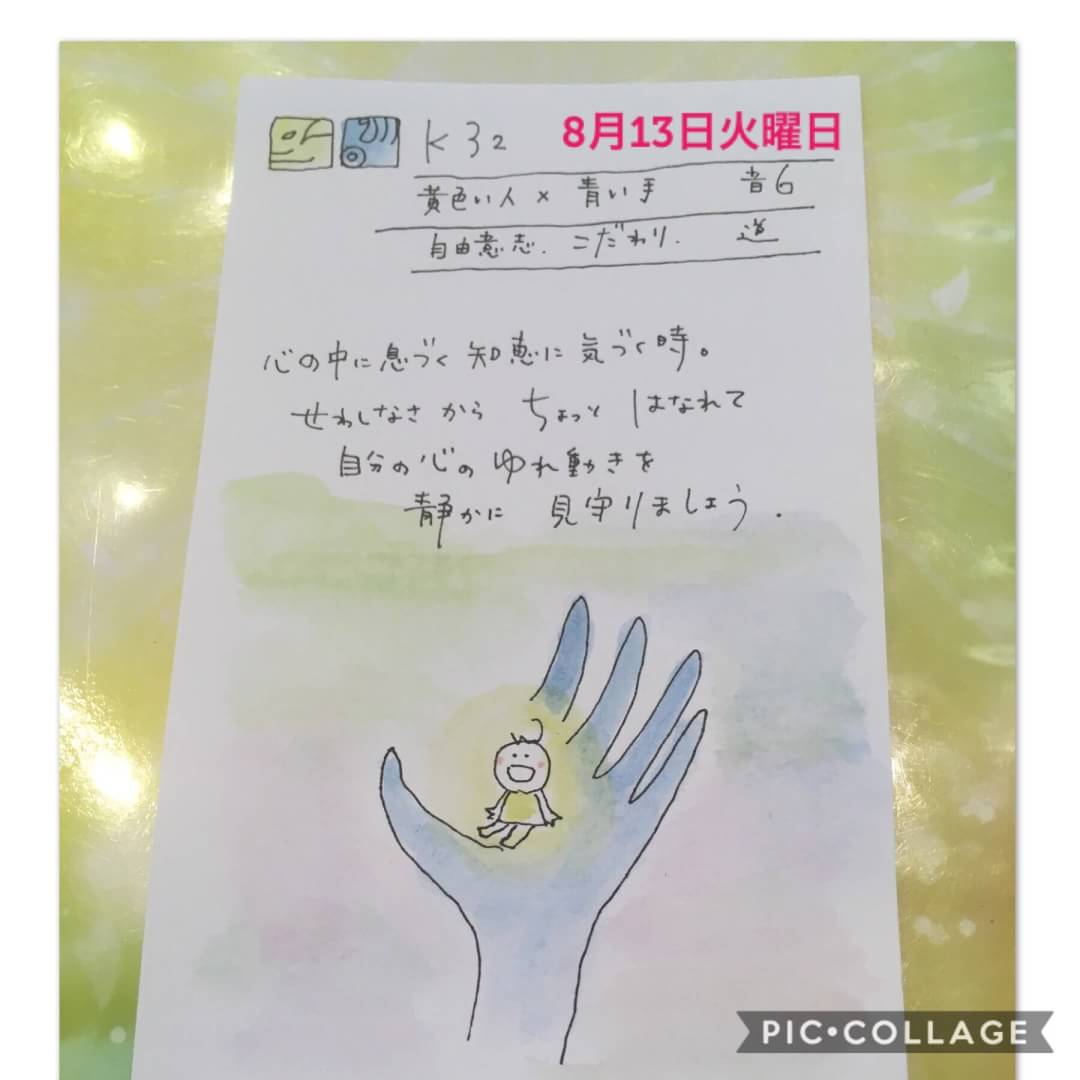 K32
8月13日火曜日
黄色い人 × 青い手 音6
自由意志. こだわり. 道
心の中に息づく知恵に気づく時。
せわしなさから ちょっと はなれて
自分の心の ゆれ動きを
静かに 見守りましょう.
PIC•COLLAGE